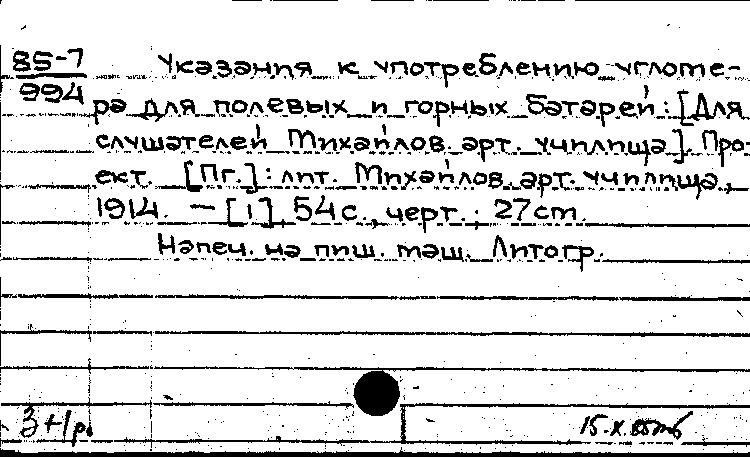 85-7
994
Указания к употреблению угломе-
ра для полевых и горных батарей: [Для
слушателей Михайлов. арт. училища]. Про-
ект. [Пг.]: лит. Михайлов. арт. училища,
1914. — [1], 54 с., черт.; 27 cm.
Напеч. на пиш. маш. Литогр.
3+1р.
15.X.85